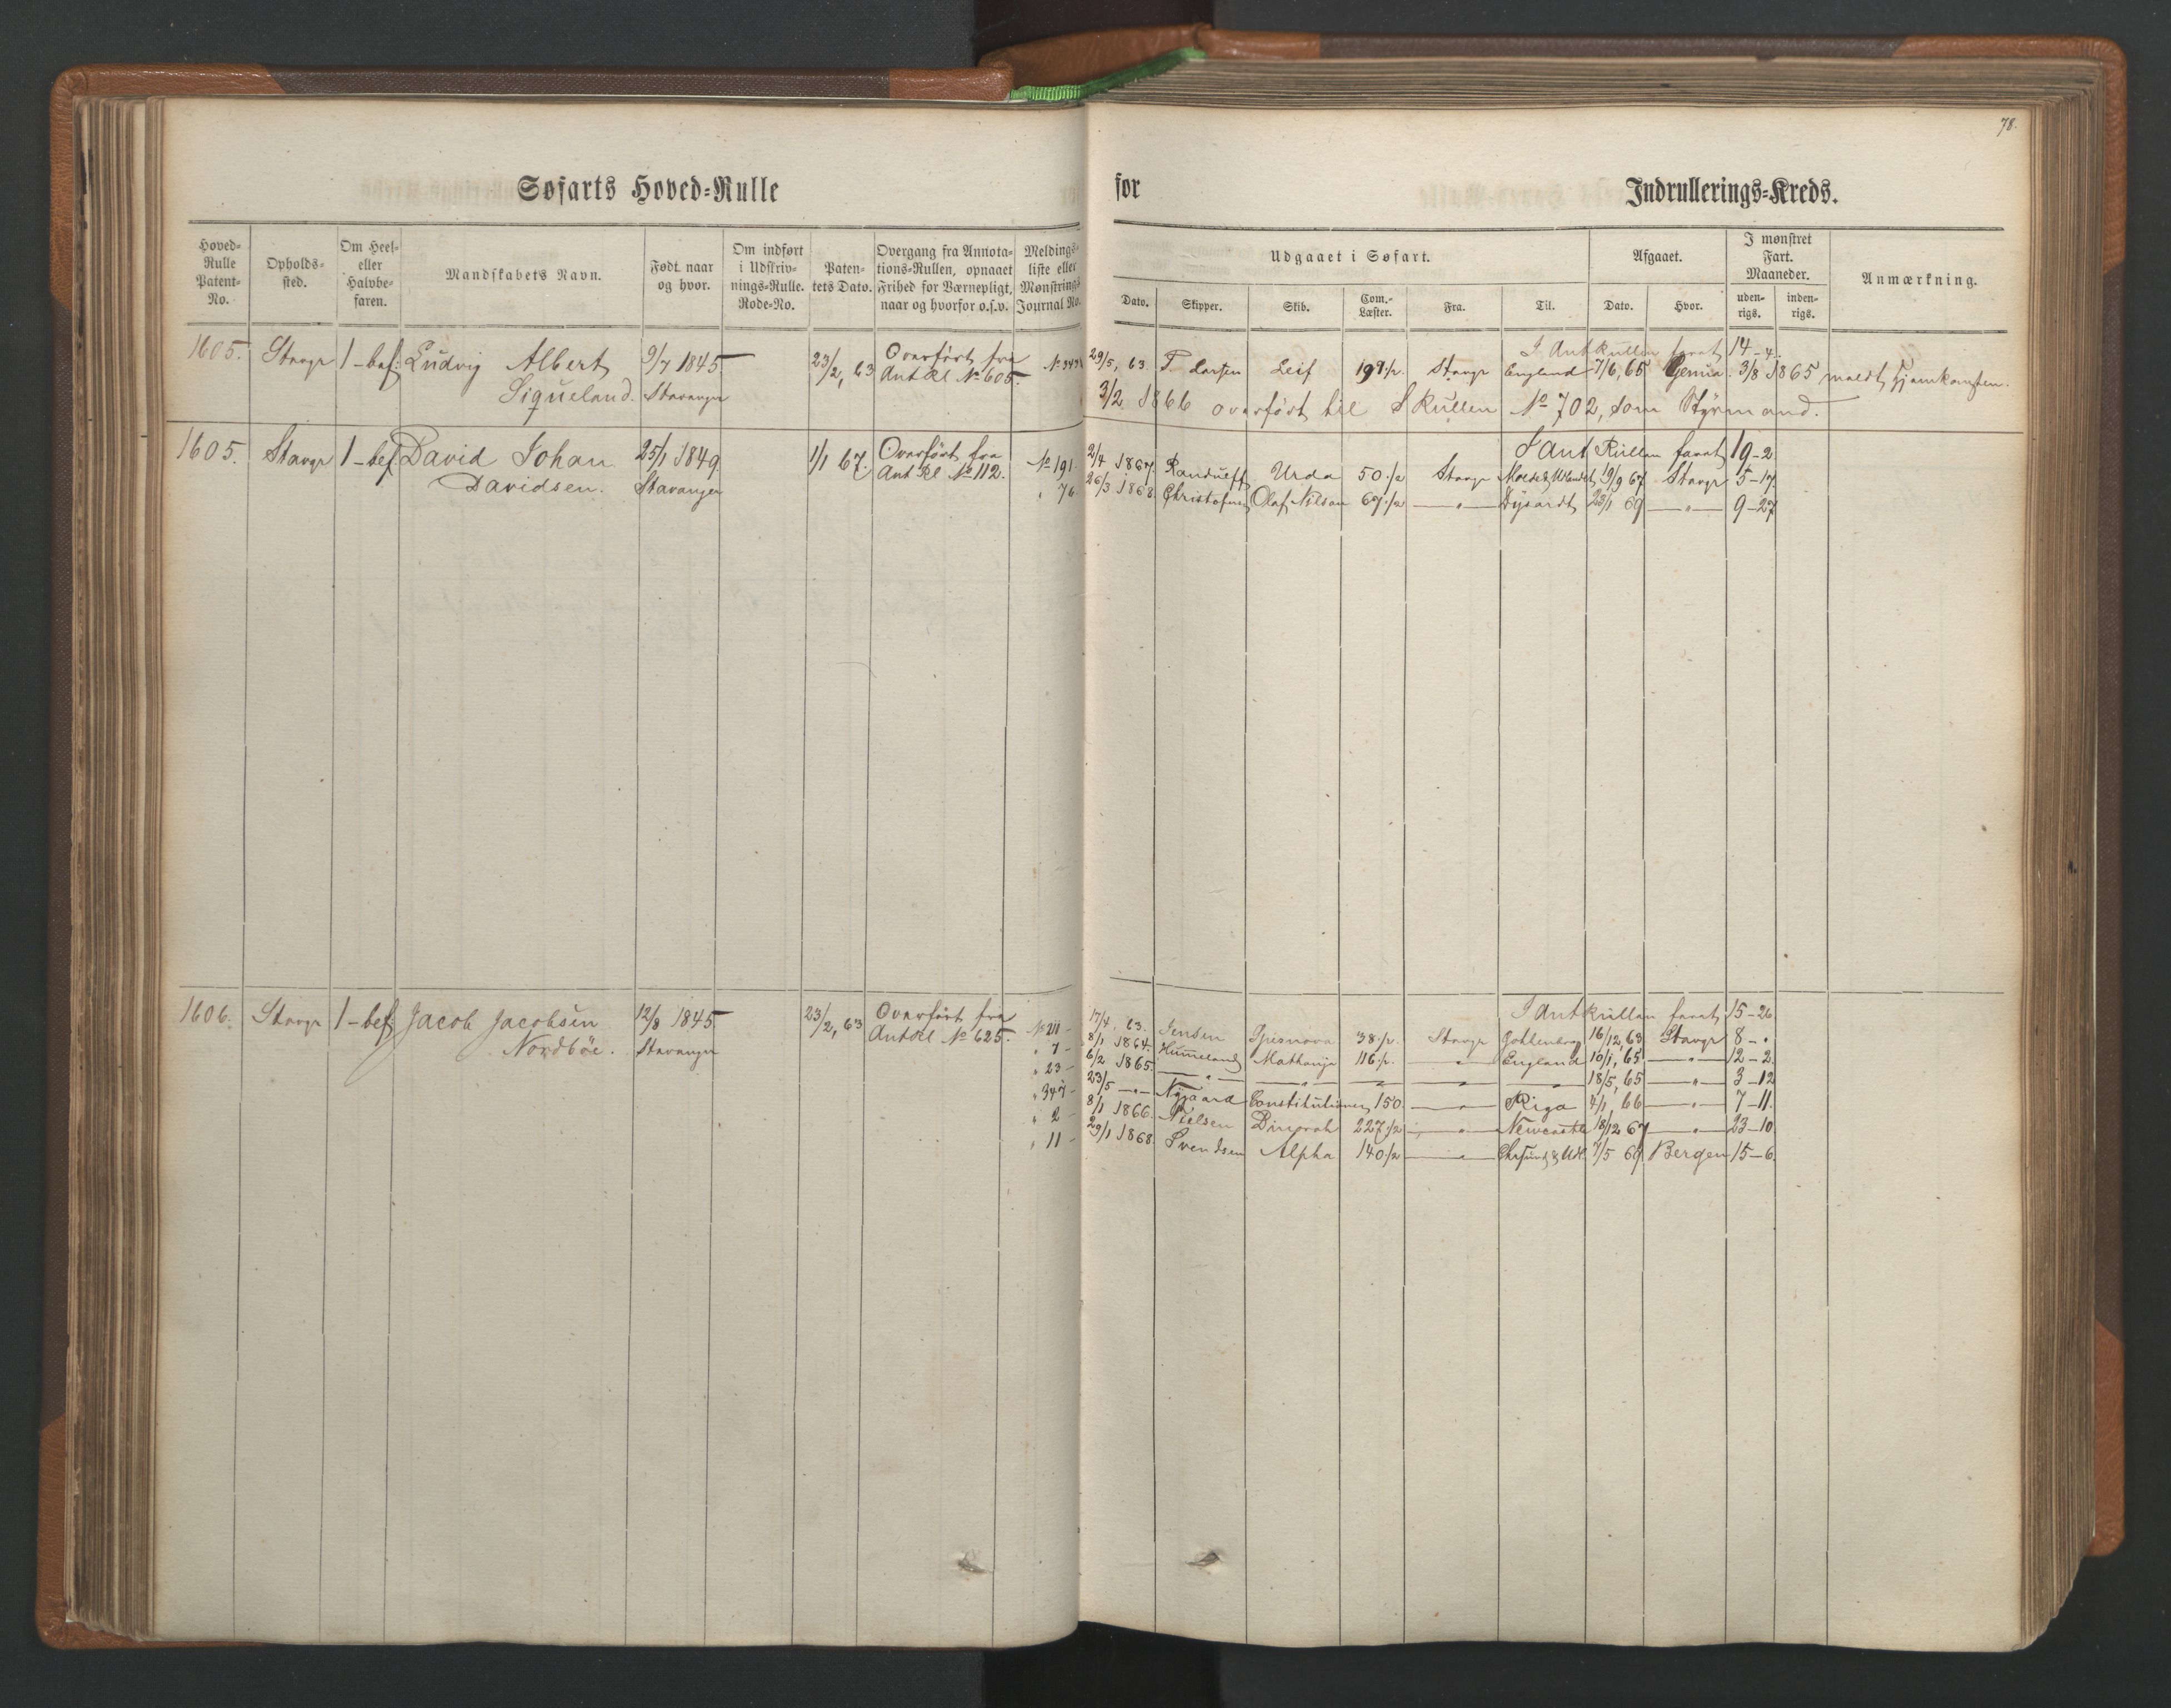 78.
Søfarts Hoved-Rulle for Indrullerings-Kreds.
Hoved-Rulle Patent-No. Opholds-sted. Om Heel- eller Halvbe-faren. Mandskabets Navn. Født naar og hvor. Om indført i Udskriv-nings-Rulle. Rode-No. Paten-tets Dato. Overgang fra Annota-tions-Rullen, opnaaet Frihed for Værnepligt, naar og hvorfor o.s.v. Meldings-liste eller Mønstrings Journal No.
Udgaaet i Søfart. Afgaaet. I mønstret Fart. Maaneder. Anmærkning.
Dato. Skipper. Skib. Com.-Læster. Fra. Til. Dato. Hvor. uden-rigs. inden-rigs.
I Antkullen farat 14-4.
1605. Stavgr 1-bef: Ludvig Albert 9/7 1845 23/2, 63 Overført fra
29/5, 63. T. Larsen Leif Stavgr England 7/6, 65 3/8 1865 meldt Hjemkomsten.
Siqueland. Stavanger Antkl No 605.
3/2 1866 overført til S Rullen No 702, som Styrmand.
1605. Stavgr 1-bef David Johan 25/1 1849 1/1 67. Overført fra
I Ant Rullen farat 19-2
Davidsen. Stavanger Ant Rl No 112. No 191.
2/4 1867 Urda 50 1/2 Stavgr 19/9 67 Stavgr 5-17
" 76. 26/3 1868 Christofersen Olaf Nilson 69 1/2 — " — Dysardt 28/1 69 — " — 9-27
1606. Stavgr 1-bef Jacob Jacobsen 12/8 1845 23/2, 63 Overført fra
I Antkullen farat 15-26
Nordbøe. Stavanger Antkl No 625.
17/4, 63. Jensen Spesnova 38 1/2 Stavgr Gothenborg 16/12, 63 Stavgr 8 - "
" 7 - 8/1 1864. Hummeland 116 1/2 — " — England 10/1, 65 — " — 12-2
" 23 - 6/2 1865. — " — — " — — — — 18/5, 65 — " — 3-12
" 347 - 23/5 — " — Nygaard Constitutionen 150 — " — Riga 4/1, 66 — " — 7-11.
" 2 - 8/1 1866. Nielsen Dinorah 227 1/2 — " — Newcastle 18/12 67 — " — 23-10
" 11 - 29/1 1868 Svendsen Alpha 140 1/2 — " — Chrsund & Udl. 7/5 69 Bergen 15-6.